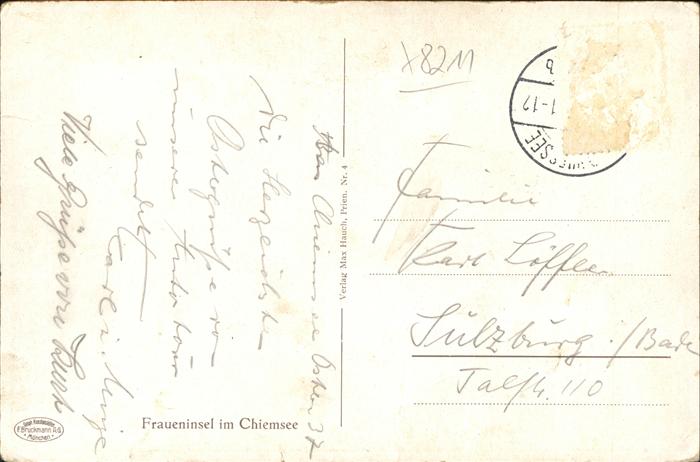 X8211
b
1-12
Am Chiemsee Ostern 37
Die Herzlichsten
Ostergrüße von
unserer Autotour
sendet
Karl i. Minje
Viele Grüße von Kurt
Familie
Karl Löffler
Sulzburg i/Baden
Talstr. 110
Verlag Max Hauch, Prien. Nr. 4
Fraueninsel im Chiemsee
F. Bruckmann A.G.
München